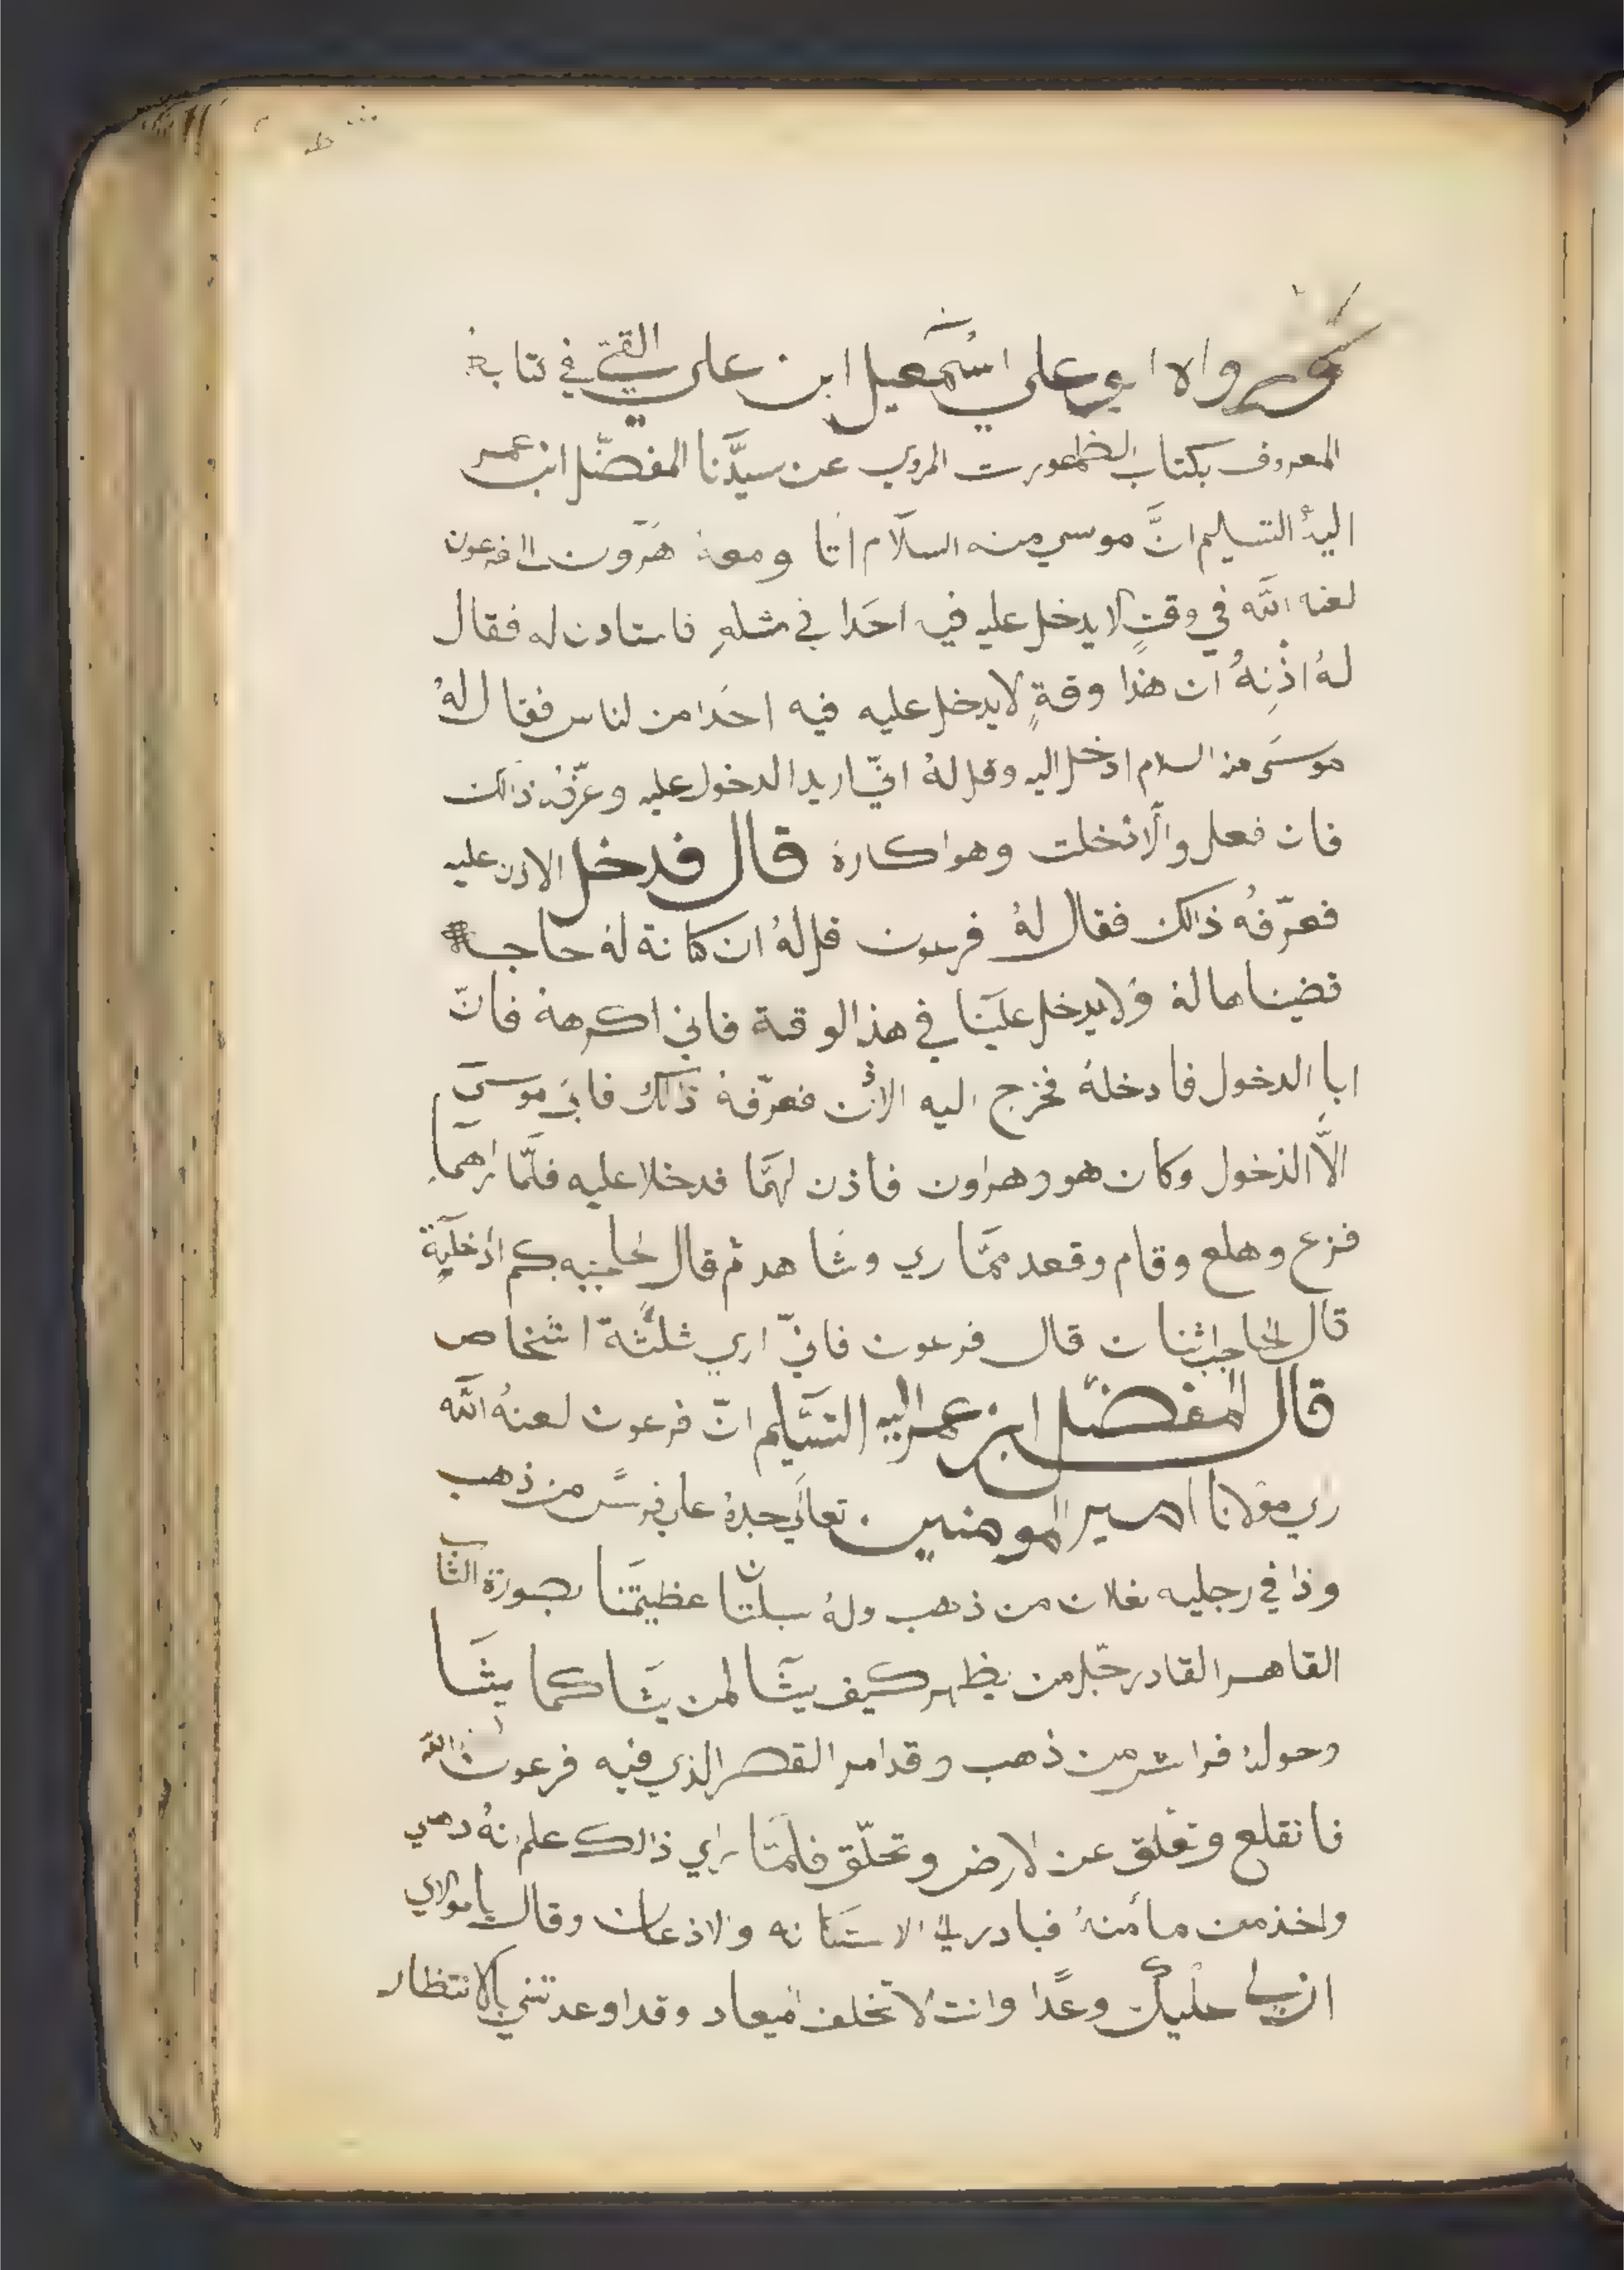 خبر رواه ابو علي اسْمَعيل ابن علي القتي في كتابهُ
المعروف بكتاب الظهورت المروي عن سيدَّنا المفضّل ابن عمر
اليهُ التسليم انَّ موسي منه السلَام اتا ومعهُ هَرَون الا فرعون
لعنه اللّه في وقتٍ لا يدخل عليه فيه احَدا في مثلهِ فاستادن له فقال
لهُ اذْنِهُ ان هذا وقةٍ لا يدخل عليه فيه احَدا من لناس فقال لهُ
موسَى منه السلام ادخل اليه وقل لهُ انيّ اريد الدخول عليه وعرّفهُ ذالك
فان فعل والّا دخلت وهوا كارهُ قال فدخل الاذن عليه
فعرّفهُ ذالك فقال لهُ فرعون قل لهُ ان كانة لهُ حاجه
قضيناها لهُ ولا يدخل علَينا في هذ الوقة فاني اكرههُ فانّ
ابا الدخول فادخلهُ فخرج اليه الاذن فعرّفهُ ذالك فابَى موسيَ
الاَّ الدخول وكان هو وهراون فاذن لهمَا فدخلا عليه فلمّا راهمَا
فزع وهلع وقام وقعد ممّا ري وشَاهد ثم قال لحاجبه كم ادخلتة
قال الحاجب اثنان قال فرعون فانيّ اري ثلثَة اشخاص
قال المفضّل ابن عمر اليه التسَليم انّ فرعون لعنهُ اللّه
راي مولانا امير المومنين تعالَي جدهُ علي فرسً من ذهب
وذا في رجليه نعلان من ذهب ولهُ سبلتان عظيمَتنا بصورة الشاب
القاهر القادر جّل من يظهر كيف يشَا لمن يشَا كما يشَا
وحولهُ فراش من ذهب وقد امر القصر الذي فيه فرعون لعنه اللّه
فانقلع وتعلق عن الارض وتحلّق فلَمّا راي ذالك علم انهُ دهي
واخذ من مأمنهُ فبادر الي الاستغاثه والاذعان وقال يا مولاي
ان لي عليك وعدًا وانت لا تخلف الميعاد وقد اوعدتني بالانتظار